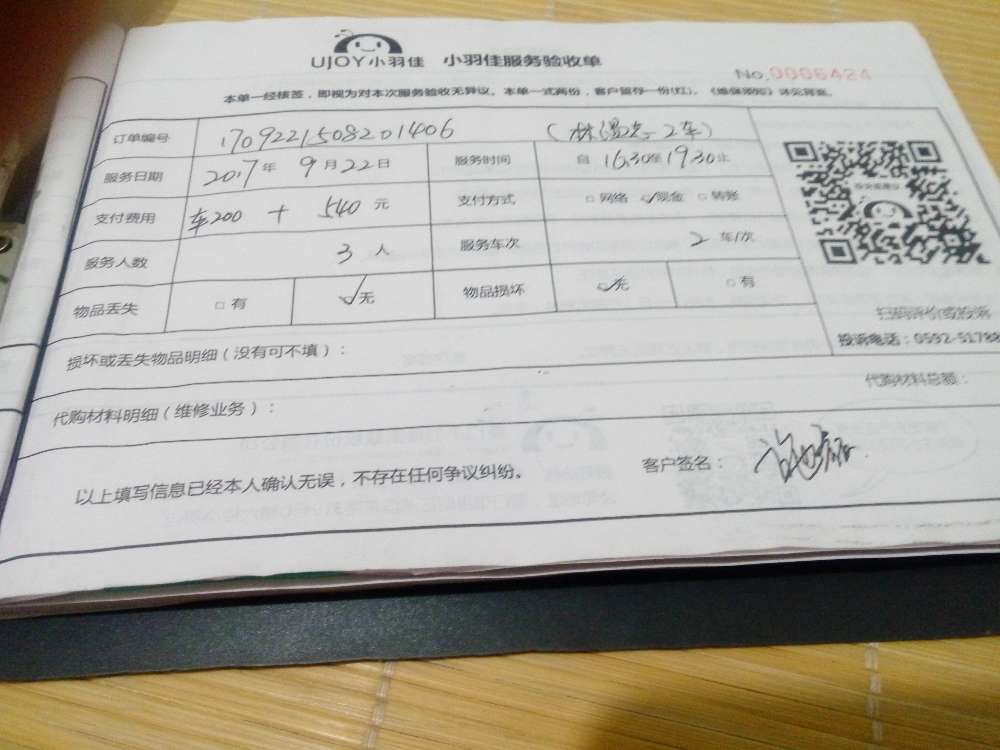 UJOY小羽佳 小羽佳服务验收单
No.0006424
本单一经核签，即视为对本次服务验收无异议。本单一式两份，客户暂存一份(红)。
订单编号 1709221508201406 2车)
服务日期 2017年9月22日 服务时间 自16:30至19:30止
支付费用 车200 + 540 元 支付方式 □网络 ☑现金 □转账
服务人数 3 人 服务车次 2 车/次
物品丢失 □有 ☑无 物品损坏 ☑无 □有
扫码评价或投诉
投诉电话：0592-51788
损坏或丢失物品明细（没有可不填）：
代购材料明细（维修业务）： 代购材料总额：
以上填写信息已经本人确认无误，不存在任何争议纠纷。 客户签名：